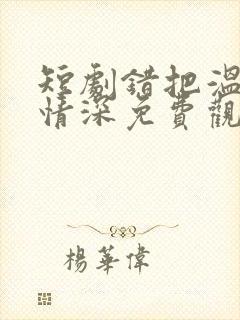 短劇錯把溫
情深免費觀
楊華偉